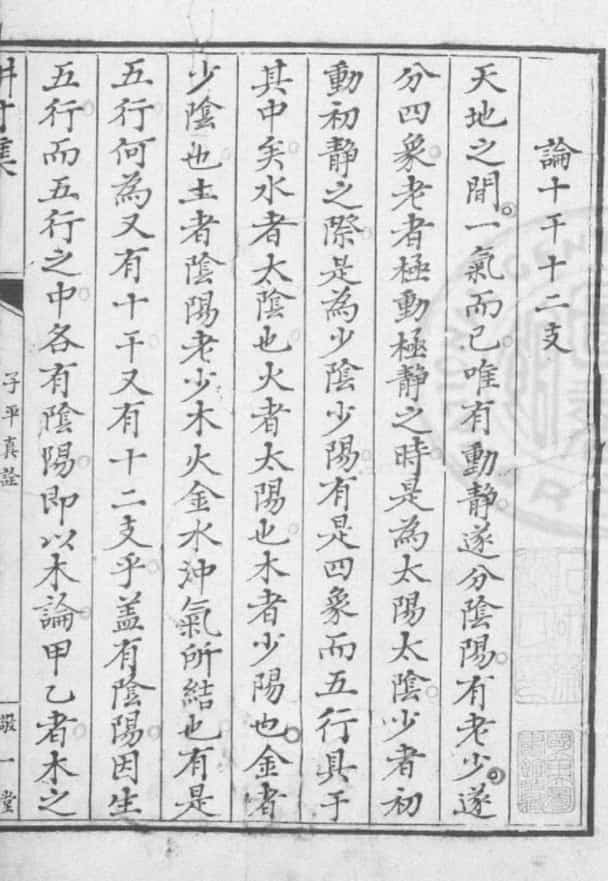 論十干十二支
天地之間一氣而已唯有動靜遂分陰陽有老少遂
分四象老者極動極靜之時是為太陽太陰少者初
動初靜之際是為少陰少陽有是四象而五行具于
其中矣水者太陰也火者太陽也木者少陽也金者
少陰也土者陰陽老少木火金水沖氣所結也有是
五行何為又有十干又有十二支乎盖有陰陽因生
五行而五行之中各有陰陽即以木論甲乙者木之
子平真詮
敬一堂